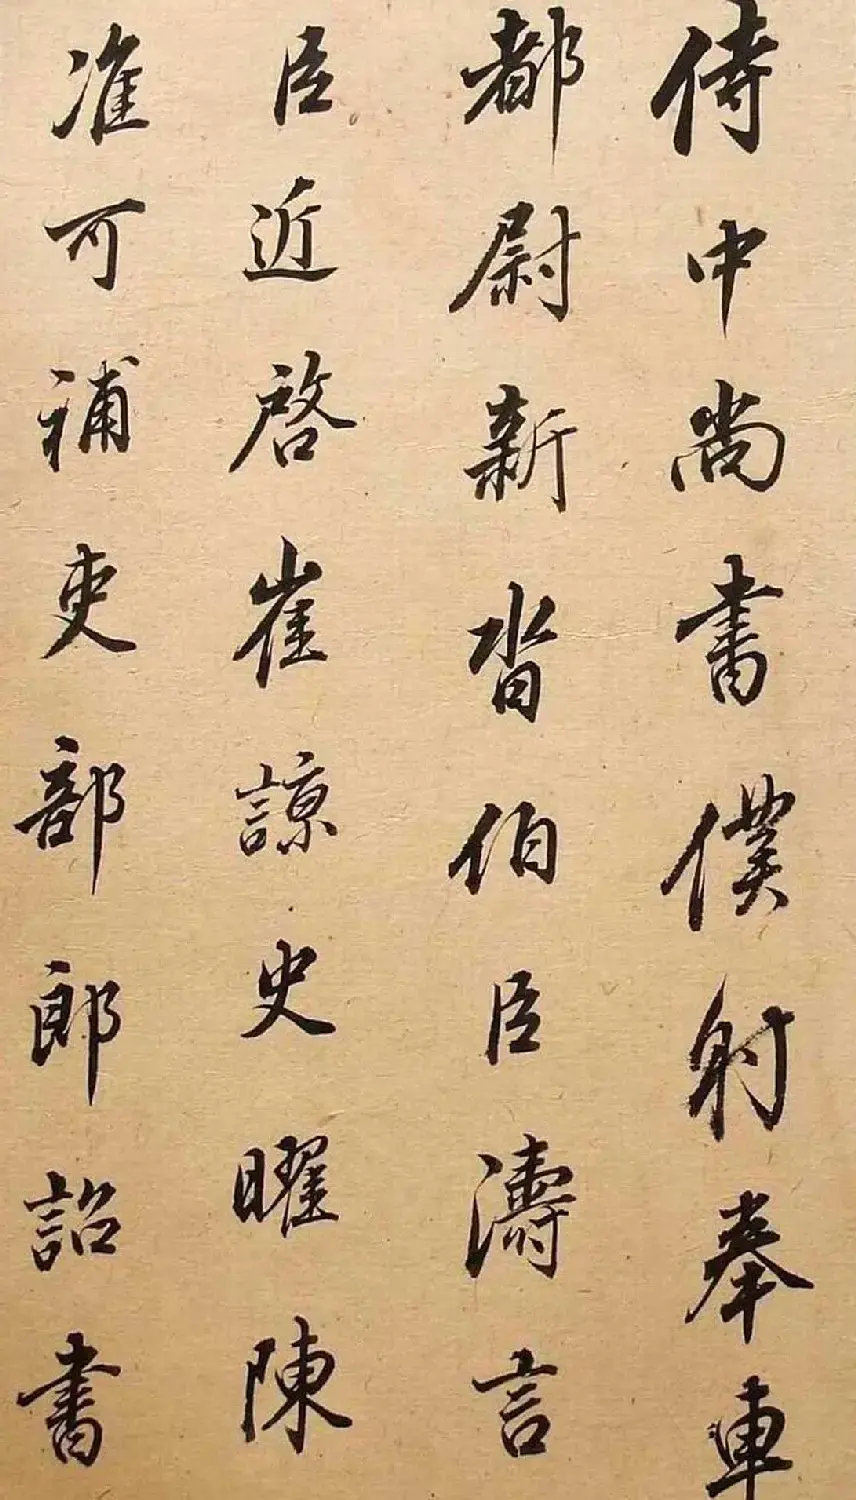 侍中尚書僕射奉車
都尉新沓伯臣濤言
臣近啓崔諒史曜陳
准可補吏部郎詔書